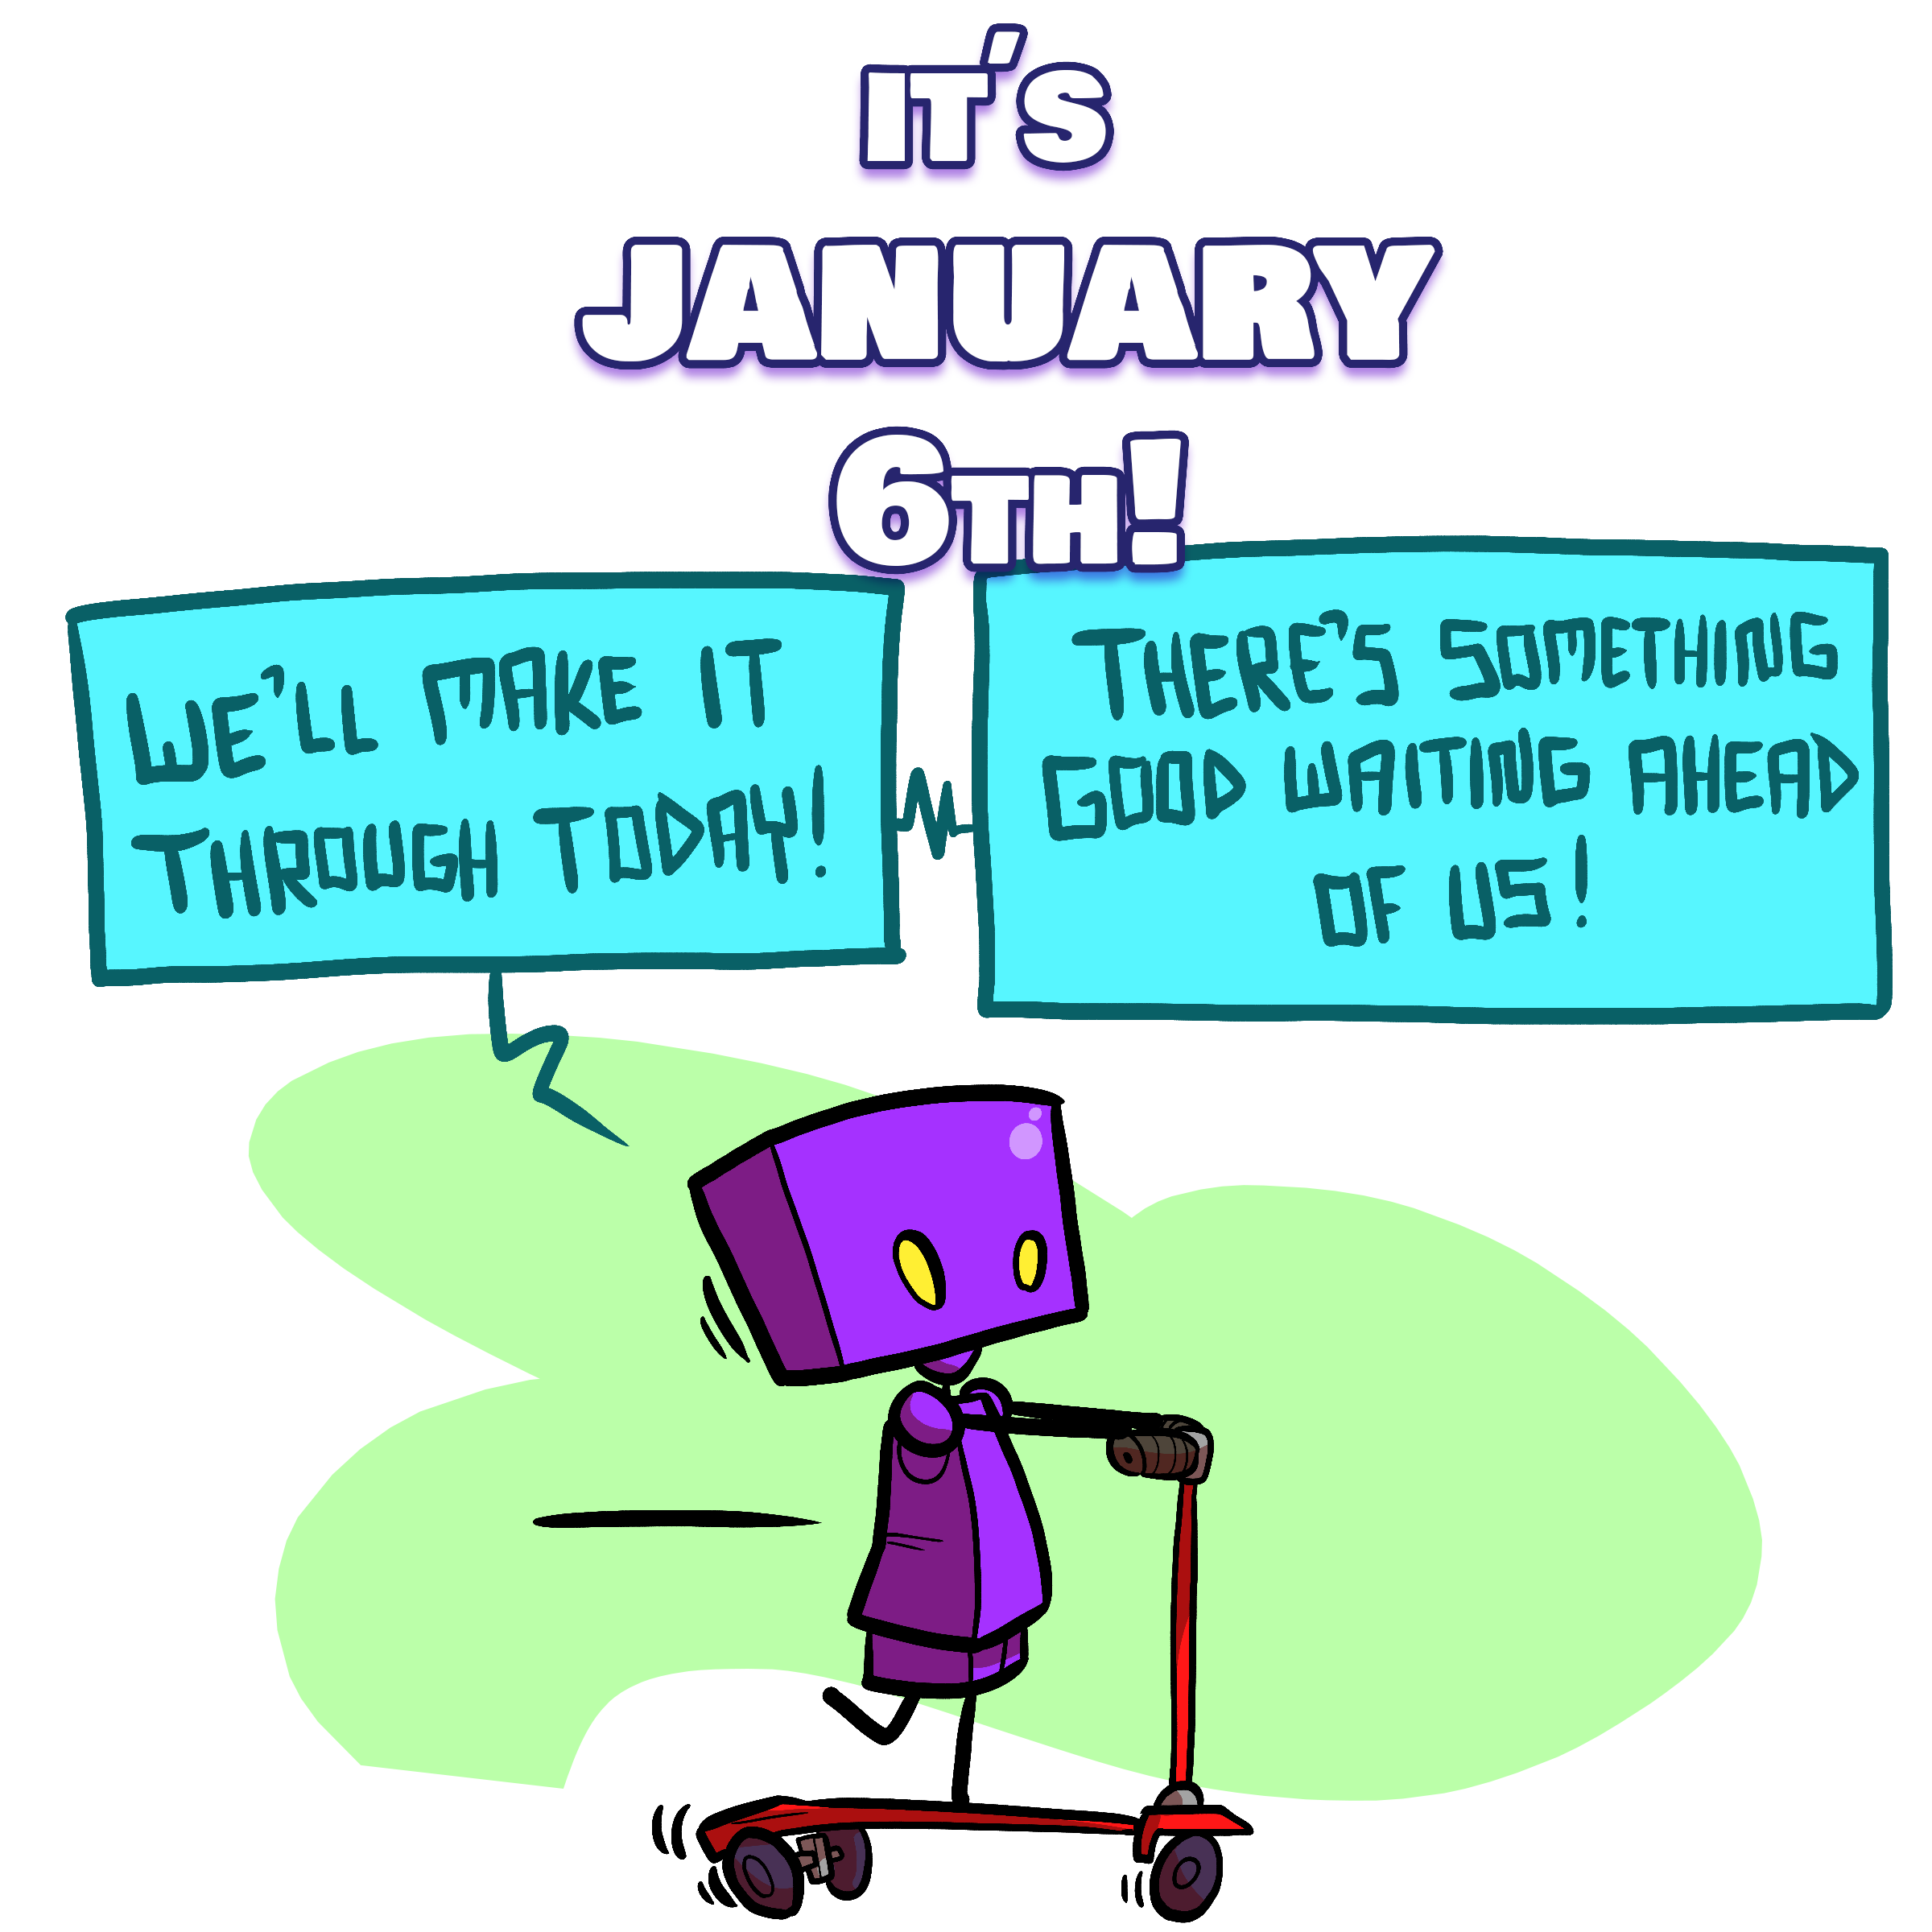 IT'S
JANUARY
6TH!
WE'LL MAKE IT
THROUGH TODAY!
THERE'S SOMETHING
GOOD WAITING AHEAD
OF US!